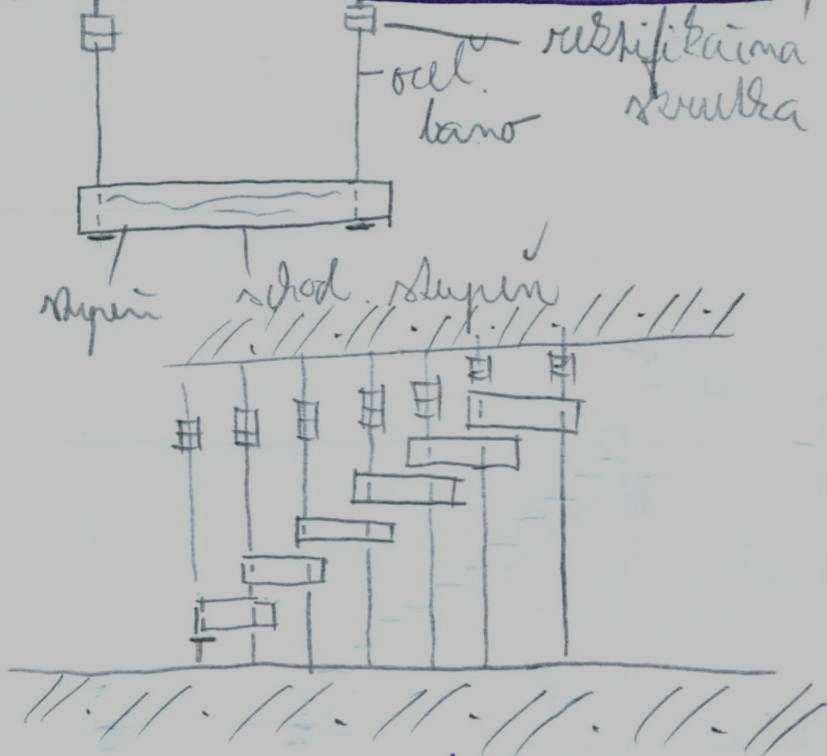 rektifikačná
skrutka
oceľ.
lano
stupeň
schod. stupeň